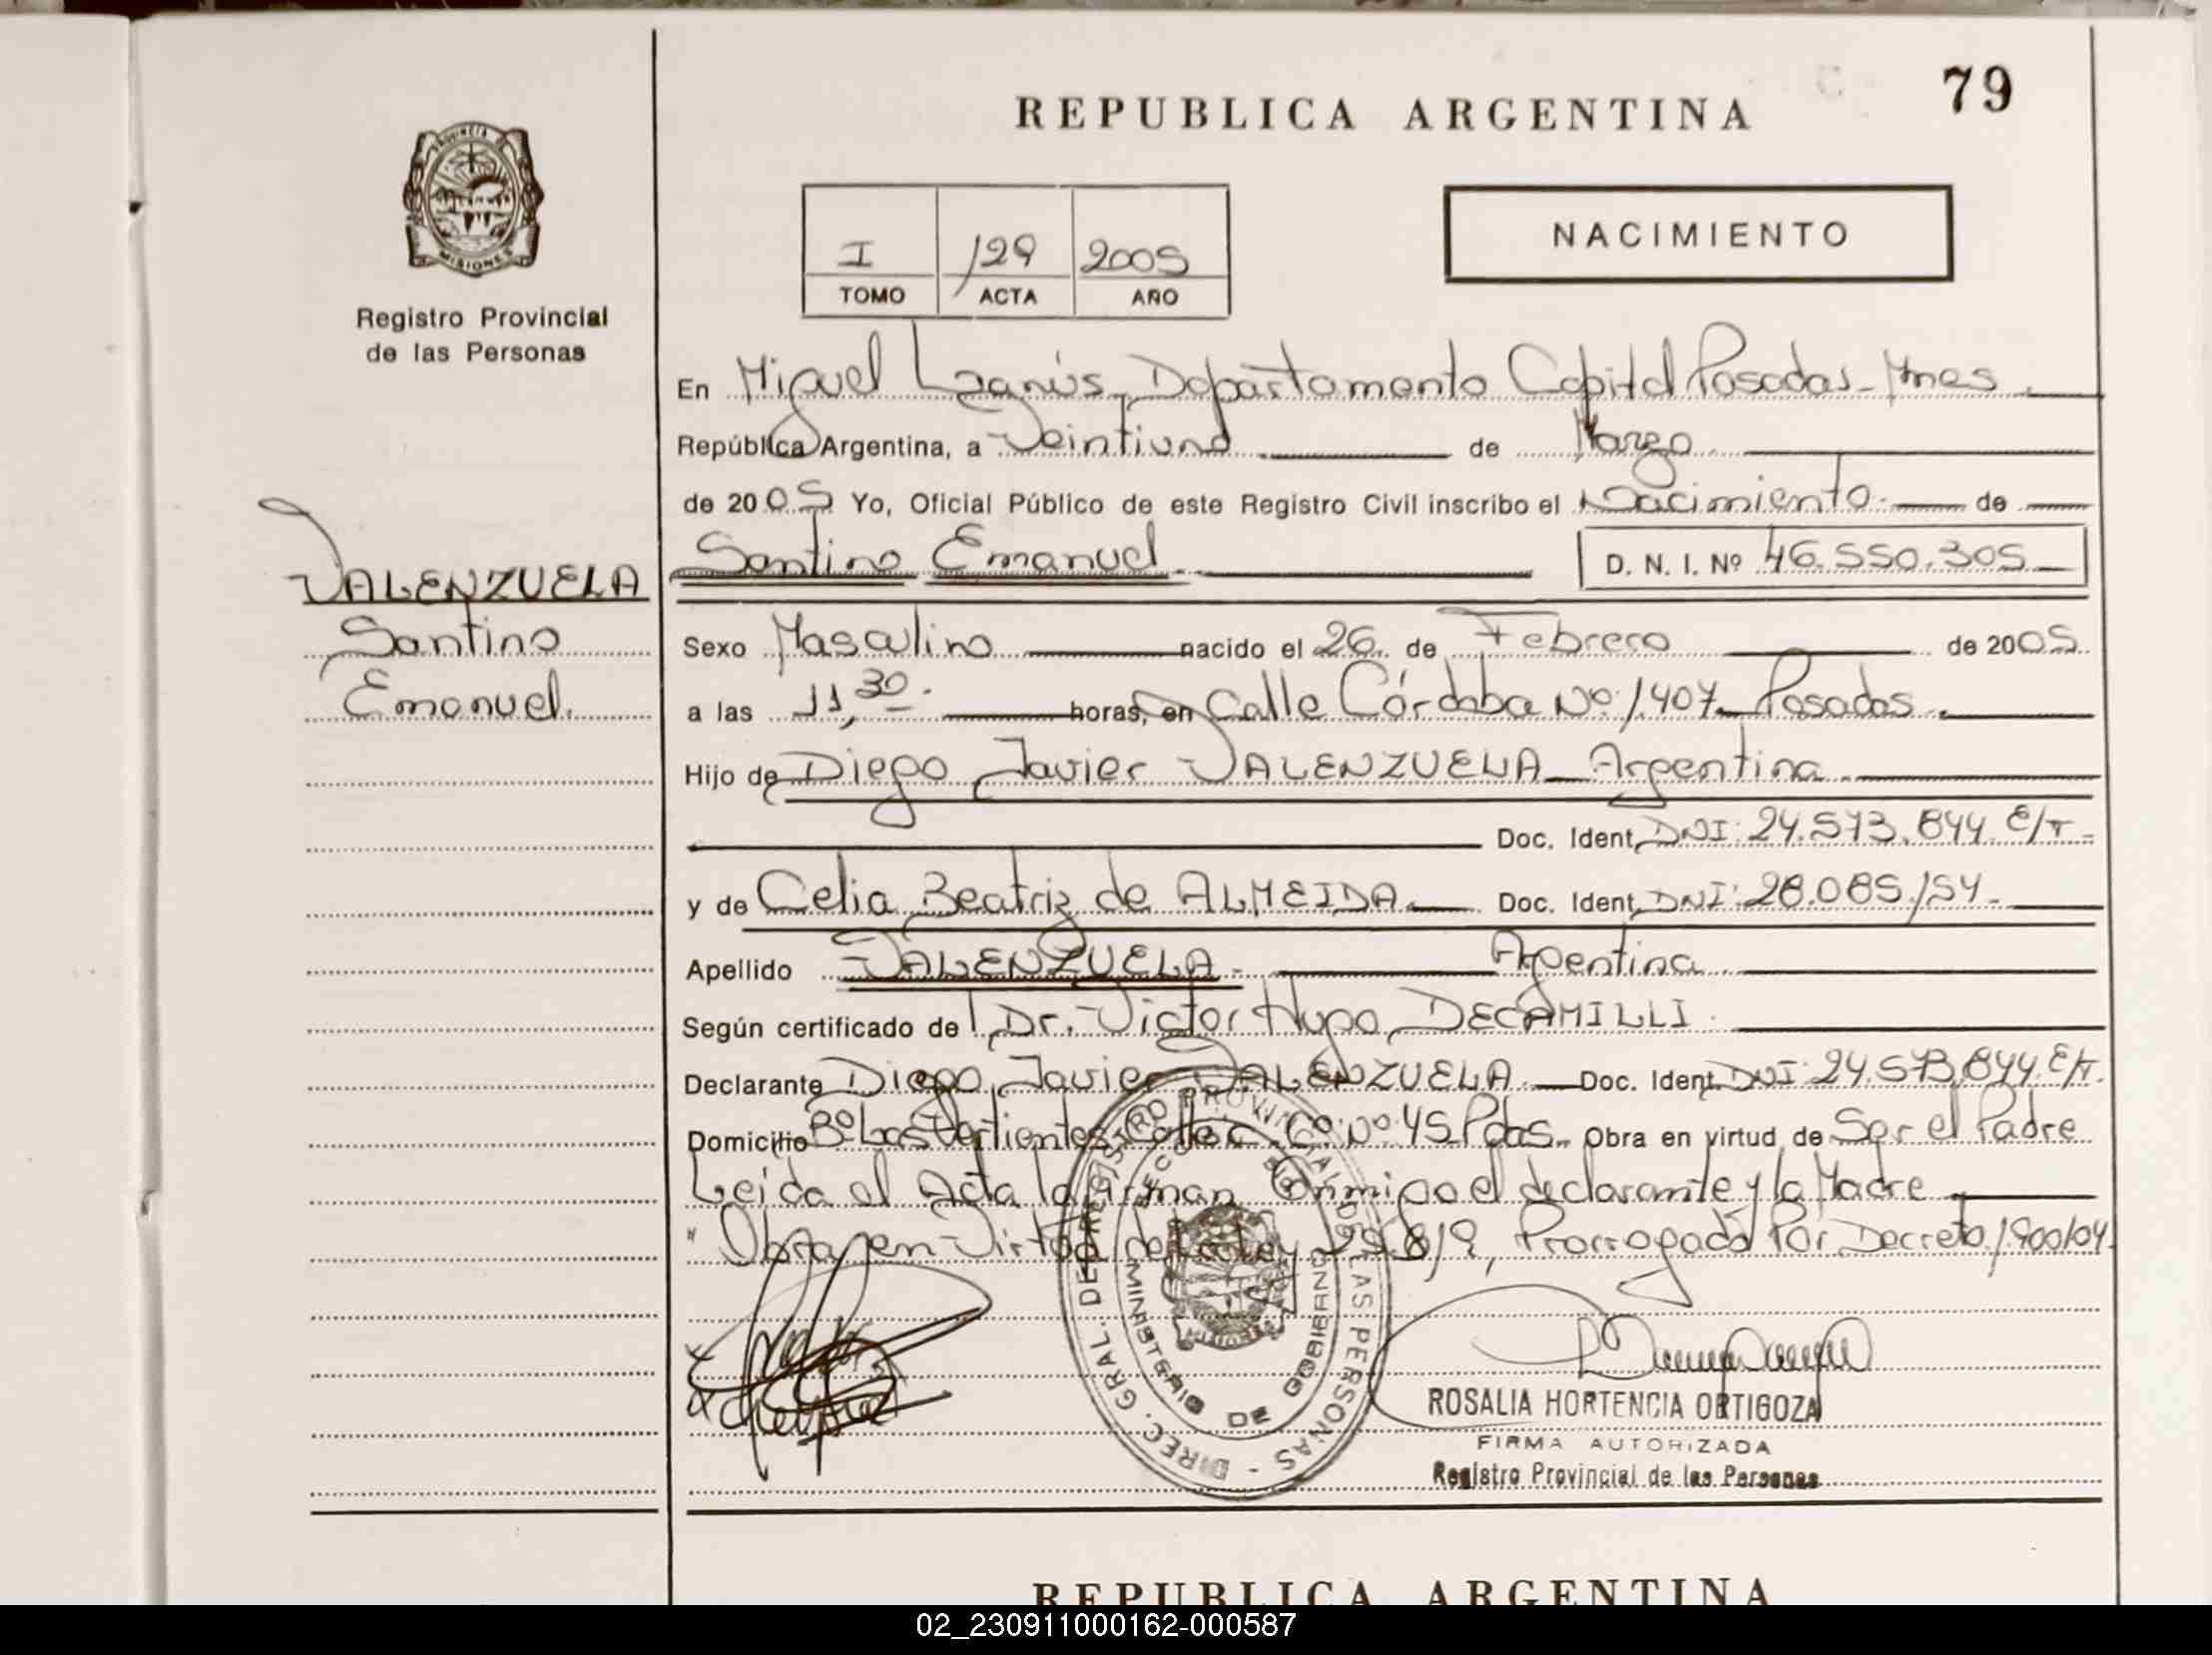 79
REPUBLICA ARGENTINA
PROVINCIA DE
MISIONES
NACIMIENTO
I 129 2005
TOMO ACTA AÑO
Registro Provincial
de las Personas
En Miguel Lanús, Departamento Capital Posadas - Mnes
República Argentina, a Veintiuno de Marzo
de 2005 Yo, Oficial Público de este Registro Civil inscribo el Nacimiento de
VALENZUELA
Santino
Emanuel.
Santino Emanuel D. N. I. Nº 46.550.305
Sexo Masculino nacido el 26 de Febrero de 2005
a las 11,30 horas, en Calle Córdoba Nº 1.407 - Posadas
Hijo de Diego Javier VALENZUELA - Argentina
Doc. Ident. DNI: 24.573.844 E/T
y de Celia Beatriz de ALMEIDA Doc. Ident. DNI: 28.085.154
Apellido VALENZUELA - Argentina
Según certificado de Dr. Victor Hugo DECAMILLI
Declarante Diego Javier VALENZUELA Doc. Ident. DNI: 24.573.844 E/T.
Domicilio Bº Las Vertientes Calle C Cº Nº 45 Pdas - Obra en virtud de Ser el Padre
Leída el Acta la firman Conmigo el declarante y la Madre
" Obra en Virtud de la Ley 25.819, Prorrogado Por Decreto 1900/04
DIREC. GRAL. DE REGISTRO PROVINCIAL DE LAS PERSONAS
MINISTERIO DE GOBIERNO
ROSALIA HORTENCIA ORTIGOZA
FIRMA AUTORIZADA
Registro Provincial de las Personas
REPUBLICA ARGENTINA
02_230911000162-000587